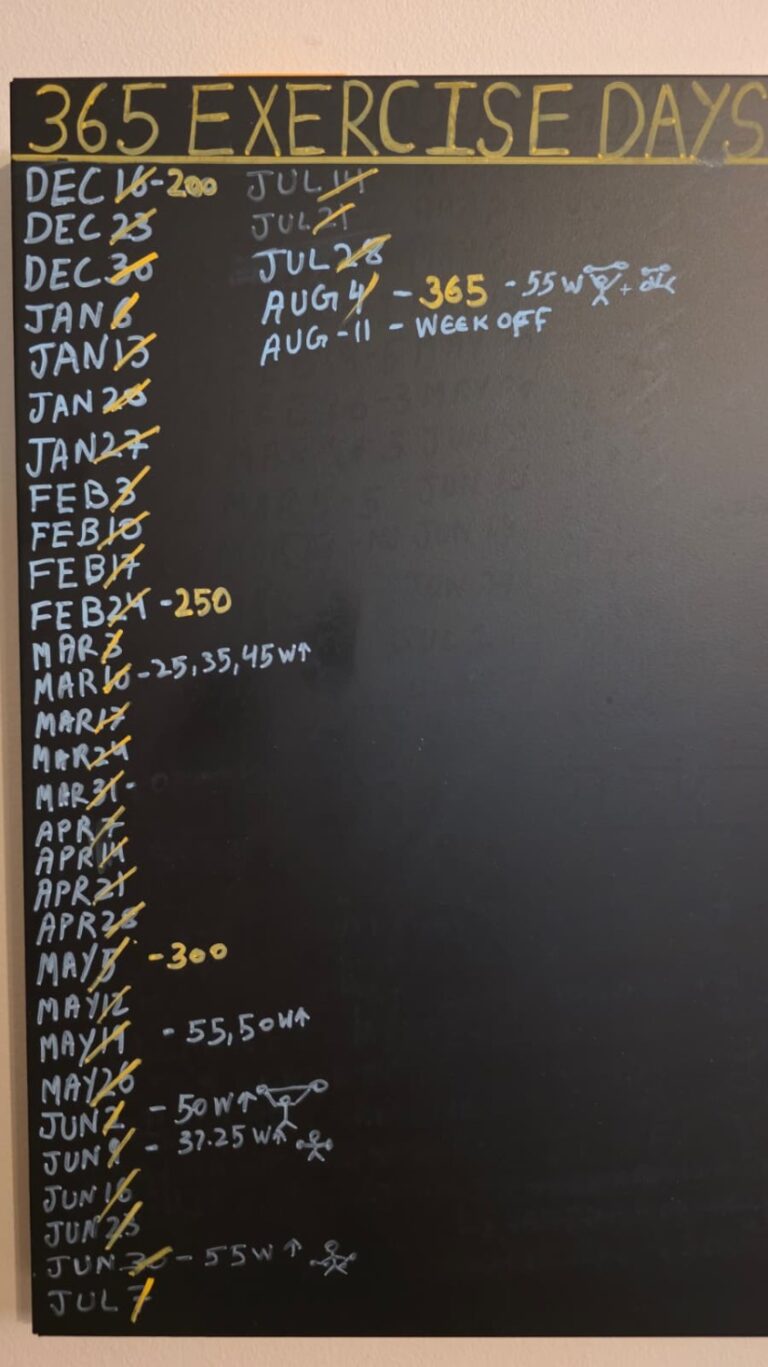 365 EXERCISE DAYS
DEC 16 - 200
DEC 23
DEC 30
JAN 6
JAN 13
JAN 20
JAN 27
FEB 3
FEB 10
FEB 17
FEB 24 - 250
MAR 3
MAR 10 - 25, 35, 45 W↑
MAR 17
MAR 24
MAR 31 -
APR 7
APR 14
APR 21
APR 28
MAY 5 - 300
MAY 12
MAY 19 - 55, 50 W↑
MAY 26
JUN 2 - 50 W↑
JUN 9 - 37.25 W↑
JUN 16
JUN 23
JUN 30 - 55 W ↑
JUL 7
JUL 14
JUL 21
JUL 28
AUG 4 - 365 - 55 W +
AUG - 11 - WEEK OFF